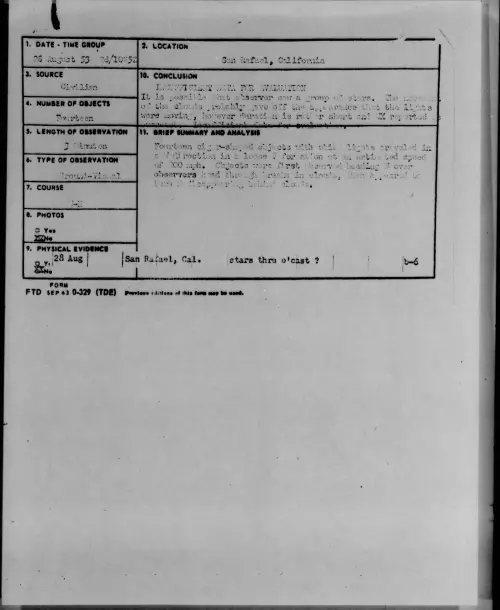 1. DATE - TIME GROUP
28 August 53
2. LOCATION
San Rafael, California
3. SOURCE
Civilian
10. CONCLUSION
INSUFFICIENT DATA FOR EVALUATION
It is possible that observer saw a group of stars. The
of the clouds probably gave off the appearance that the lights
were moving, however duration is rather short and reported
4. NUMBER OF OBJECTS
Fourteen
5. LENGTH OF OBSERVATION
3 Minutes
11. BRIEF SUMMARY AND ANALYSIS
Fourteen cigar-shaped objects with lights traveled in
a direction in a loose V formation at an estimated speed
of 200 mph. Objects were first observed heading over
observers head through breaks in clouds, then appeared to
disappearing behind clouds.
6. TYPE OF OBSERVATION
Ground-Visual
7. COURSE
8. PHOTOS
□ Yes
No
9. PHYSICAL EVIDENCE
□ Yes
No
28 Aug San Rafael, Cal. stars thru o'cast ? b-6
FORM
FTD SEP 63 0-329 (TDE) Previous editions of this form may be used.